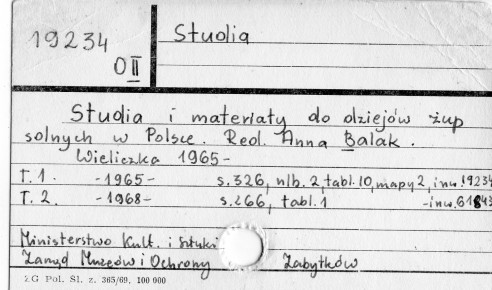 19234
O II
Studia
Studia i materiały do dziejów żup
solnych w Polsce. Red. Anna Balak.
Wieliczka 1965-
T. 1. -1965- s. 326, nlb. 2, tabl. 10, mapy 2, inw. 19234
T. 2. -1968- s. 266, tabl. 1 -inw.
Ministerstwo Kult. i Sztuki
Zarząd Muzeów i Ochrony Zabytków
ZG Pol. Śl. z. 365/69. 100 000